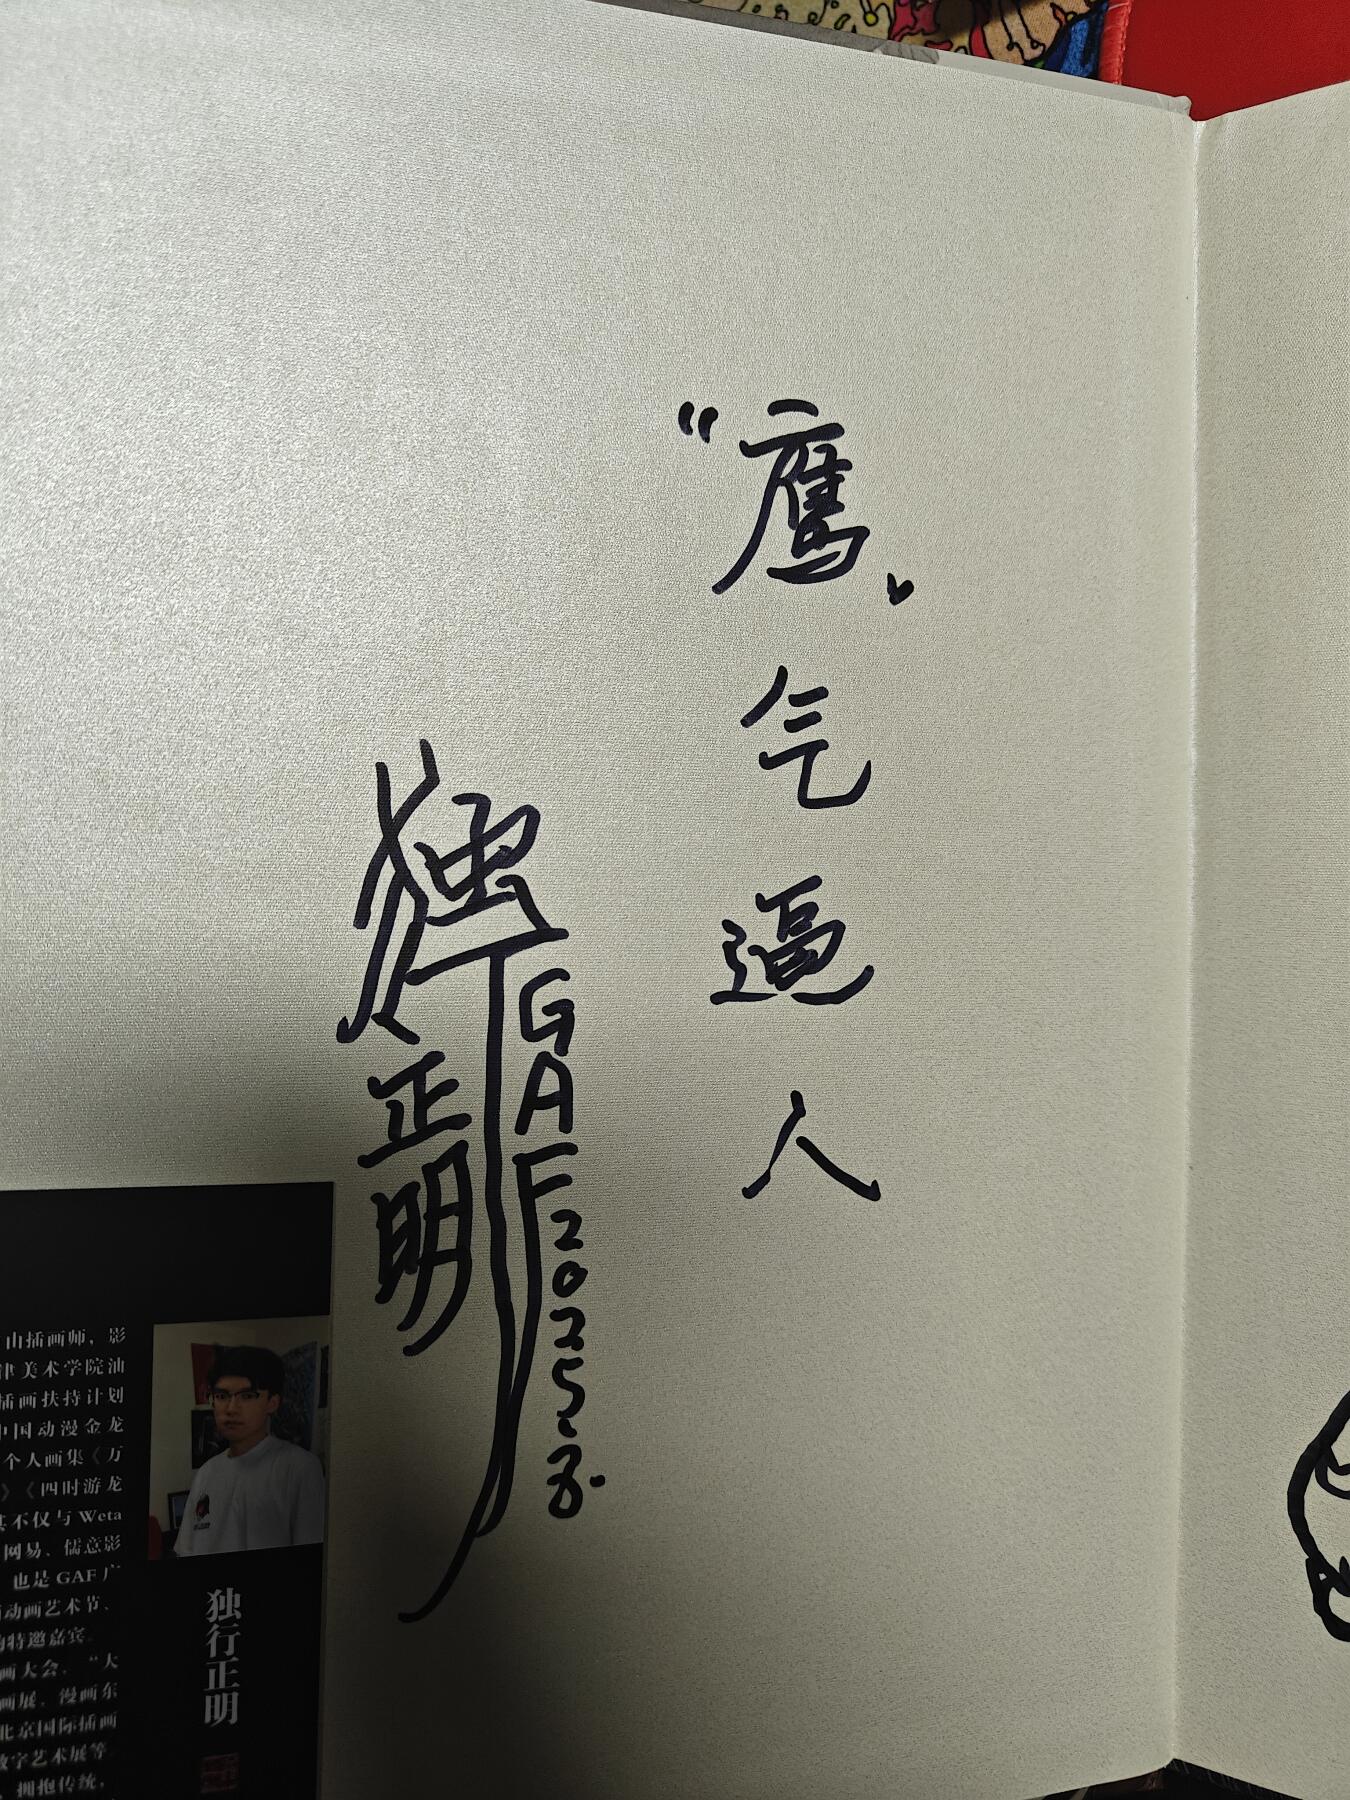 “鹰”
气
逼
人
独行正明
GAF2025.8.
由插画师，影
津美术学院油
插画扶持计划
中国动漫金龙
个人画集《万
》《四时游龙
其不仅与 Weta
网易、儒意影
也是 GAF 广
动画艺术节、
特邀嘉宾。
画大会、“大
画展、漫画东
北京国际插画
数字艺术展等。
拥抱传统，
独行正明